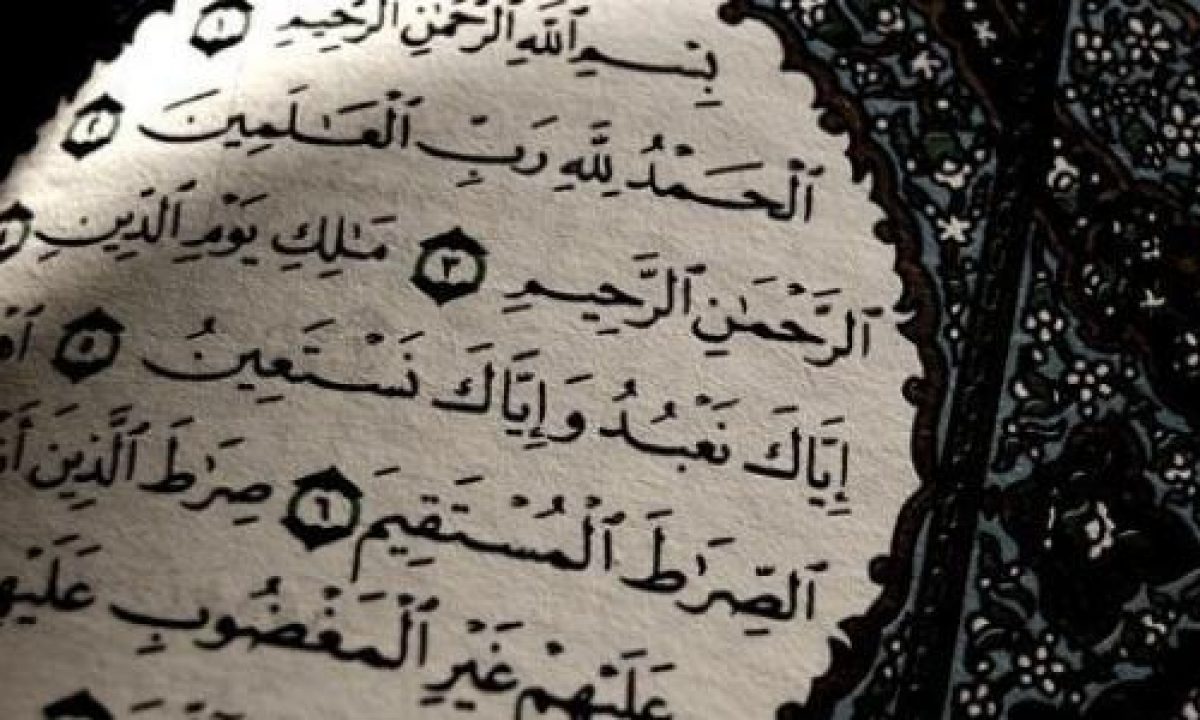 بِسْمِ ٱللَّهِ ٱلرَّحْمَٰنِ ٱلرَّحِيمِ ١
ٱلْحَمْدُ لِلَّهِ رَبِّ ٱلْعَٰلَمِينَ ٢
ٱلرَّحْمَٰنِ ٱلرَّحِيمِ ٣ مَٰلِكِ يَوْمِ ٱلدِّينِ ٤
إِيَّاكَ نَعْبُدُ وَإِيَّاكَ نَسْتَعِينُ ٥
ٱلصِّرَٰطَ ٱلْمُسْتَقِيمَ ٦ صِرَٰطَ ٱلَّذِينَ
عَلَيْهِمْ غَيْرِ ٱلْمَغْضُوبِ